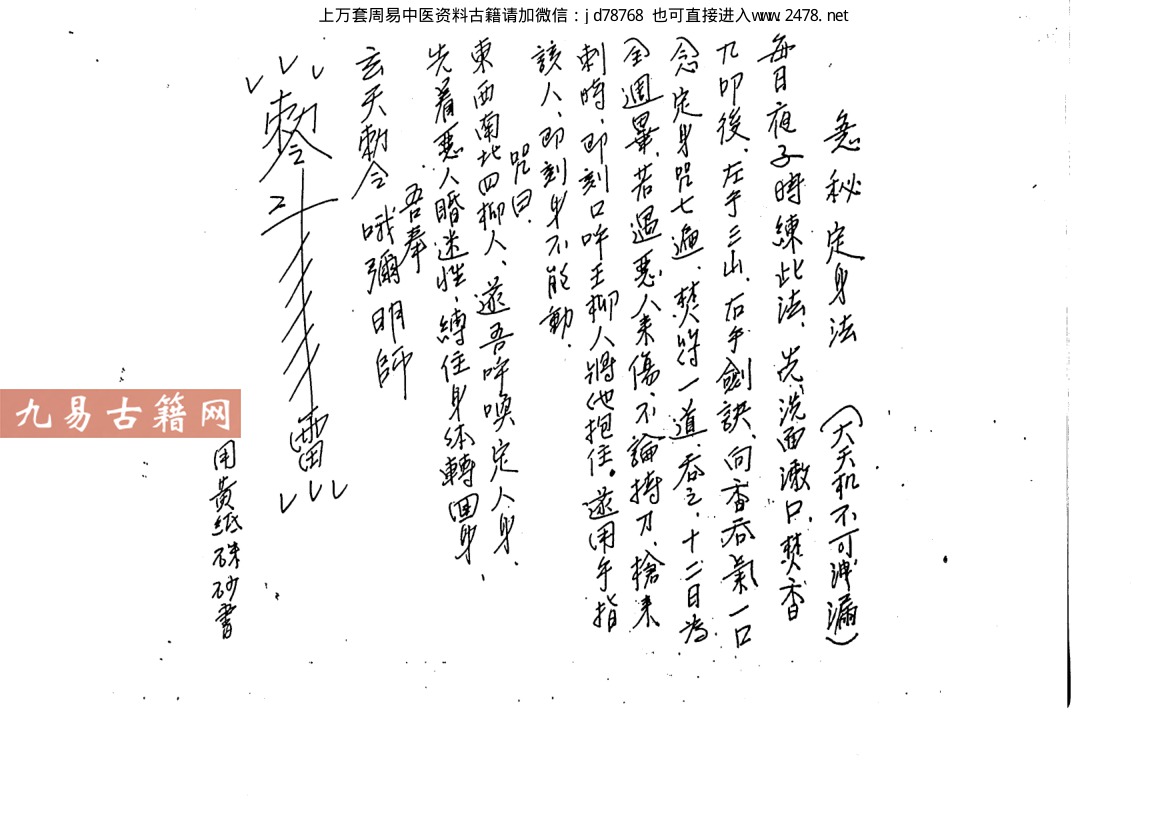 上万套周易中医资料古籍请加微信：jd78768 也可直接进入www.2478.net
急秘定身法 (大天机不可洩漏)
每日夜子時練此法、先洗面漱口、焚香
九叩後、左手三山、右手劍訣、向香吞氣一口
念定身咒七遍、焚符一道、吞之、十二日為
全週畢、若遇惡人來傷、不論持刀、槍來
刺時、即刻口吽王柳人將他抱住。遂用手指
該人、即刻身不能動、
咒曰、
東西南北四柳人、遂吾吽喚定人身、
先着惡人昏迷性、縛住身体轉回身、
吾奉
玄天勅令 哦彌明師
勅令
雷
用黃紙硃砂書
九易古籍网